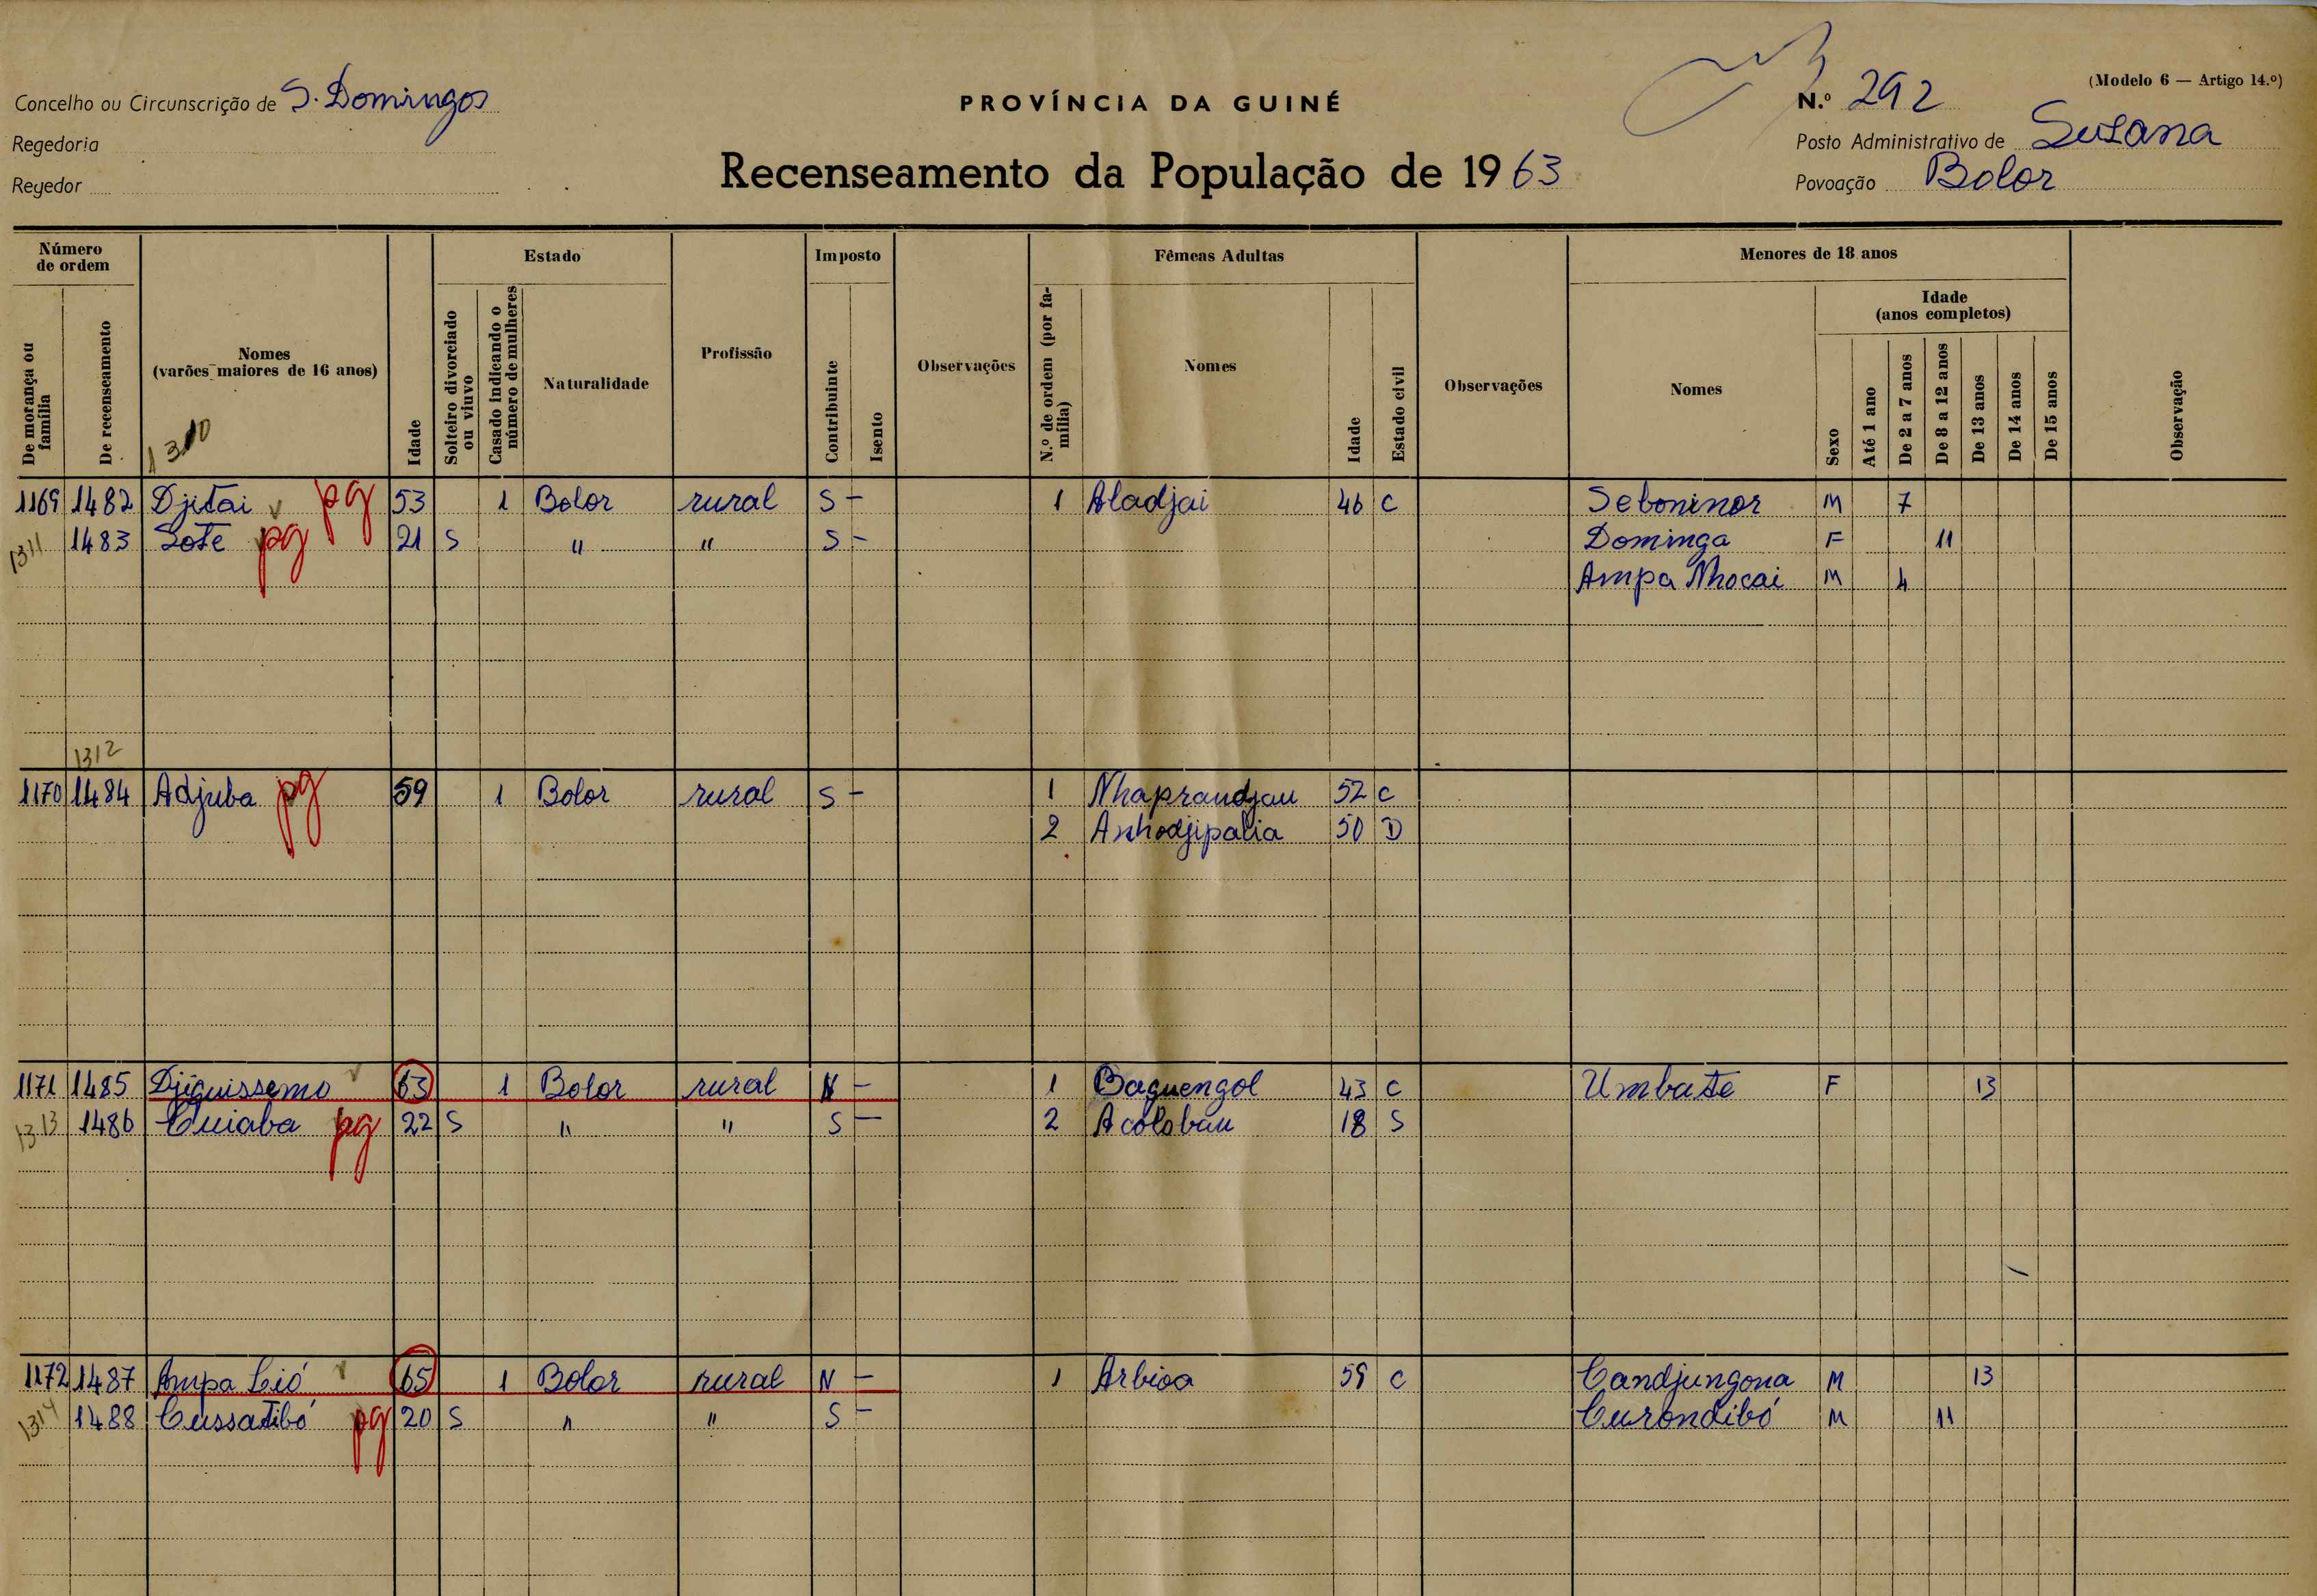 (Modelo 6 — Artigo 14.º)
Concelho ou Circunscrição de S. Domingos
PROVÍNCIA DA GUINÉ
N.º 292
Regedoria
Posto Administrativo de Susana
Regedor
Recenseamento da População de 1963
Povoação Bolor
Número de ordem
Estado
Imposto
Fêmeas Adultas
Menores de 18 anos
De morança ou família
De recenseamento
Nomes (varões maiores de 16 anos)
Idade
Solteiro divorciado ou viuvo
Casado indicando o número de mulheres
Naturalidade
Profissão
Contribuinte
Isento
Observações
N.º de ordem (por família)
Nomes
Idade
Estado civil
Observações
Nomes
Sexo
Idade (anos completos)
Até 1 ano
De 2 a 7 anos
De 8 a 12 anos
De 13 anos
De 14 anos
De 15 anos
Observação
1310
1169 1482 Djitai pg 53 1 Bolor rural S – 1 Aladjai 46 C Seboninor M 7
1311 1483 Sote pg 21 S " " S – Dominga F 11
Ampa Nhocai M 4
1312
1170 1484 Adjuba pg 59 1 Bolor rural S – 1 Nhaprandjau 52 C
2 Anhodjipalia 50 D
1171 1485 Djiguissemo 63 1 Bolor rural N – 1 Baguengol 43 C Umbate F 13
1313 1486 Cuiaba pg 22 S " " S – 2 Acolobau 18 S
1172 1487 Ampa Lió 65 1 Bolor rural N – 1 Arbioa 59 C Candjungona M 13
1314 1488 Cussatibó pg 20 S " " S – Curondibó M 11